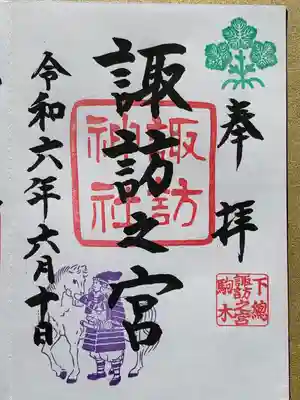 奉拝
諏訪之宮
諏訪神社
下総
諏訪之宮
駒木
令和六年六月十日